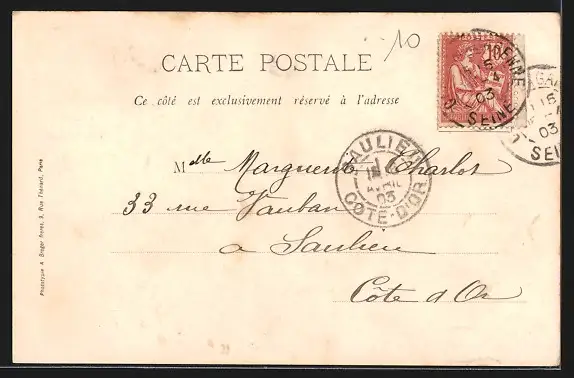 10
CARTE POSTALE
Ce côté est exclusivement réservé à l'adresse
Mlle Marguerite Charlot
33 rue Vauban
à Saulieu
Côte d'Or
SAULIEU
AVRIL
03
CÔTE-D'OR
10
03
SEINE
03
Phototypie A. Breger frères, 9, Rue Thénard, Paris